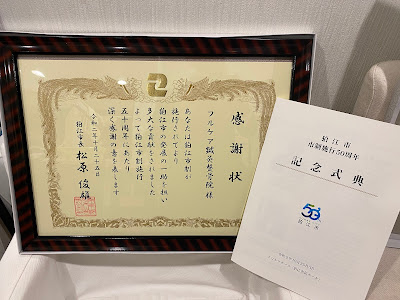 感謝状
フルケア鍼灸整骨院
あなたは狛江市制が
施行されてより
狛江市の発展の一助を担い
多大な貢献をされました
よって狛江市制施行
五十周年にあたり
深く感謝の意を表します
令和二年十月二十五日
狛江市長 松原俊雄
狛江市
市制施行50周年
記念式典
50
狛江市